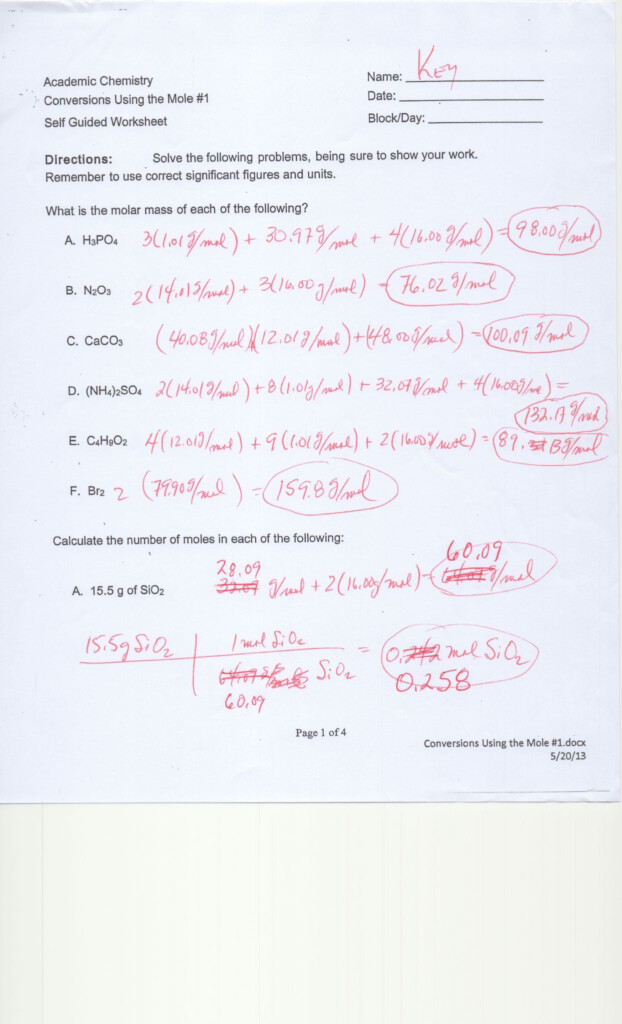 Academic Chemistry
Conversions Using the Mole #1
Self Guided Worksheet
Name: Key
Date:
Block/Day:
Directions: Solve the following problems, being sure to show your work.
Remember to use correct significant figures and units.
What is the molar mass of each of the following?
A. H₃PO₄ 3(1.01 g/mol) + 30.97 g/mol + 4(16.00 g/mol) = 98.00 g/mol
B. N₂O₃ 2(14.01 g/mol) + 3(16.00 g/mol) = 76.02 g/mol
C. CaCO₃ (40.08 g/mol)(12.01 g/mol) + (48.00 g/mol) = 100.09 g/mol
D. (NH₄)₂SO₄ 2(14.01 g/mol) + 8(1.01 g/mol) + 32.07 g/mol + 4(16.00 g/mol) =
132.17 g/mol
E. C₄H₉O₂ 4(12.01 g/mol) + 9(1.01 g/mol) + 2(16.00 g/mol) = 89.13 g/mol
F. Br₂ 2 (79.90 g/mol) = 159.8 g/mol
Calculate the number of moles in each of the following:
60.09
28.09
A. 15.5 g of SiO₂ g/mol + 2(16.00 g/mol) = g/mol
15.5g SiO₂ 1 mol SiO₂ = 0. mol SiO₂
SiO₂ 0.258
60.09
Page 1 of 4
Conversions Using the Mole #1.docx
5/20/13